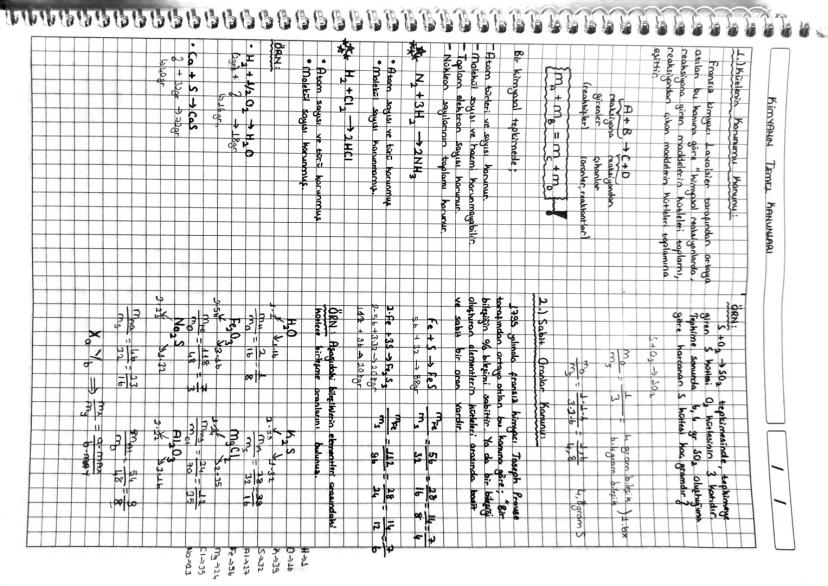 KİMYANIN TEMEL KANUNLARI
/ /
1.) Kütlenin Korunumu Kanunu:
Fransız kimyacı Lavoisier tarafından ortaya
atılan bu kanuna göre "kimyasal reaksiyonlarda,
reaksiyona giren maddelerin kütleleri toplamı,
reaksiyondan çıkan maddelerin kütleleri toplamına
eşittir.
A + B → C + D
reaksiyona reaksiyondan
girenler çıkanlar
(reaktifler) (ürünler, reaktantlar)
mA + mB = mC + mD
Bir kimyasal tepkimede;
- Atom türleri ve sayısı korunur.
- Molekül sayısı ve hacmi korunmayabilir.
- Toplam elektron sayısı korunur.
- Nükleon sayılarının toplamı korunur.
N2 + 3H2 → 2NH3
• Atom sayısı ve türü korunmuş
• Molekül sayısı korunmamış.
H2 + Cl2 → 2HCl
• Atom sayısı ve türü korunmuş
• Molekül sayısı korunmuş.
ÖRN:
• H2 + 1/2 O2 → H2O
2gr + ? → 18gr
16gr
• Ca + S → CaS
? + 32gr → 72gr
40gr
ÖRN:
S + O2 → SO2 tepkimesinde, tepkimeye
giren S kütlesi O2 kütlesinin 3 katıdır.
Tepkime sonunda 6,4 gr SO2 oluştuğuna
göre harcanan S kütlesi kaç gramdır?
S + O2 → SO2
mO / mS = 1 / 3
4 gram bileşik
6,4 gram bileşik
mO / mS = 1·1,6 / 3·1,6 = 1,6 / 4,8
4,8 gram S
2.) Sabit Oranlar Kanunu:
1799 yılında fransız kimyacı Joseph Prouse
tarafından ortaya atılan bu kanuna göre; "Bir
bileşiğin % bileşimi sabittir. Ya da bir bileşiği
oluşturan elementlerin kütleleri arasında basit
ve sabit bir oran vardır.
Fe + S → FeS
56 + 32 → 88gr
mFe / mS = 56 / 32 = 28 / 16 = 14 / 8 = 7 / 4
2Fe + 3S → Fe2S3
2·56 + 3·32 → 208gr
112 + 96 → 208gr
mFe / mS = 112 / 96 = 28 / 24 = 14 / 12 = 7 / 6
ÖRN: Aşağıdaki bileşiklerin elementleri arasındaki
kütlece birleşme oranlarını bulunuz.
H2O
mH / mO = 2 / 16 = 1 / 8
K2S
Fe2O3
MgCl2
Na2S
mNa / mS = 46 / 32 = 23 / 16
Al2O3
mAl / mO = 54 / 48 = 9 / 8
XaYb ⇒ mx / my = a·MAX / b·MAY
H→1
O→16
K→39
S→32
Al→27
Fe→56
Mg→24
Cl→35
Na→23